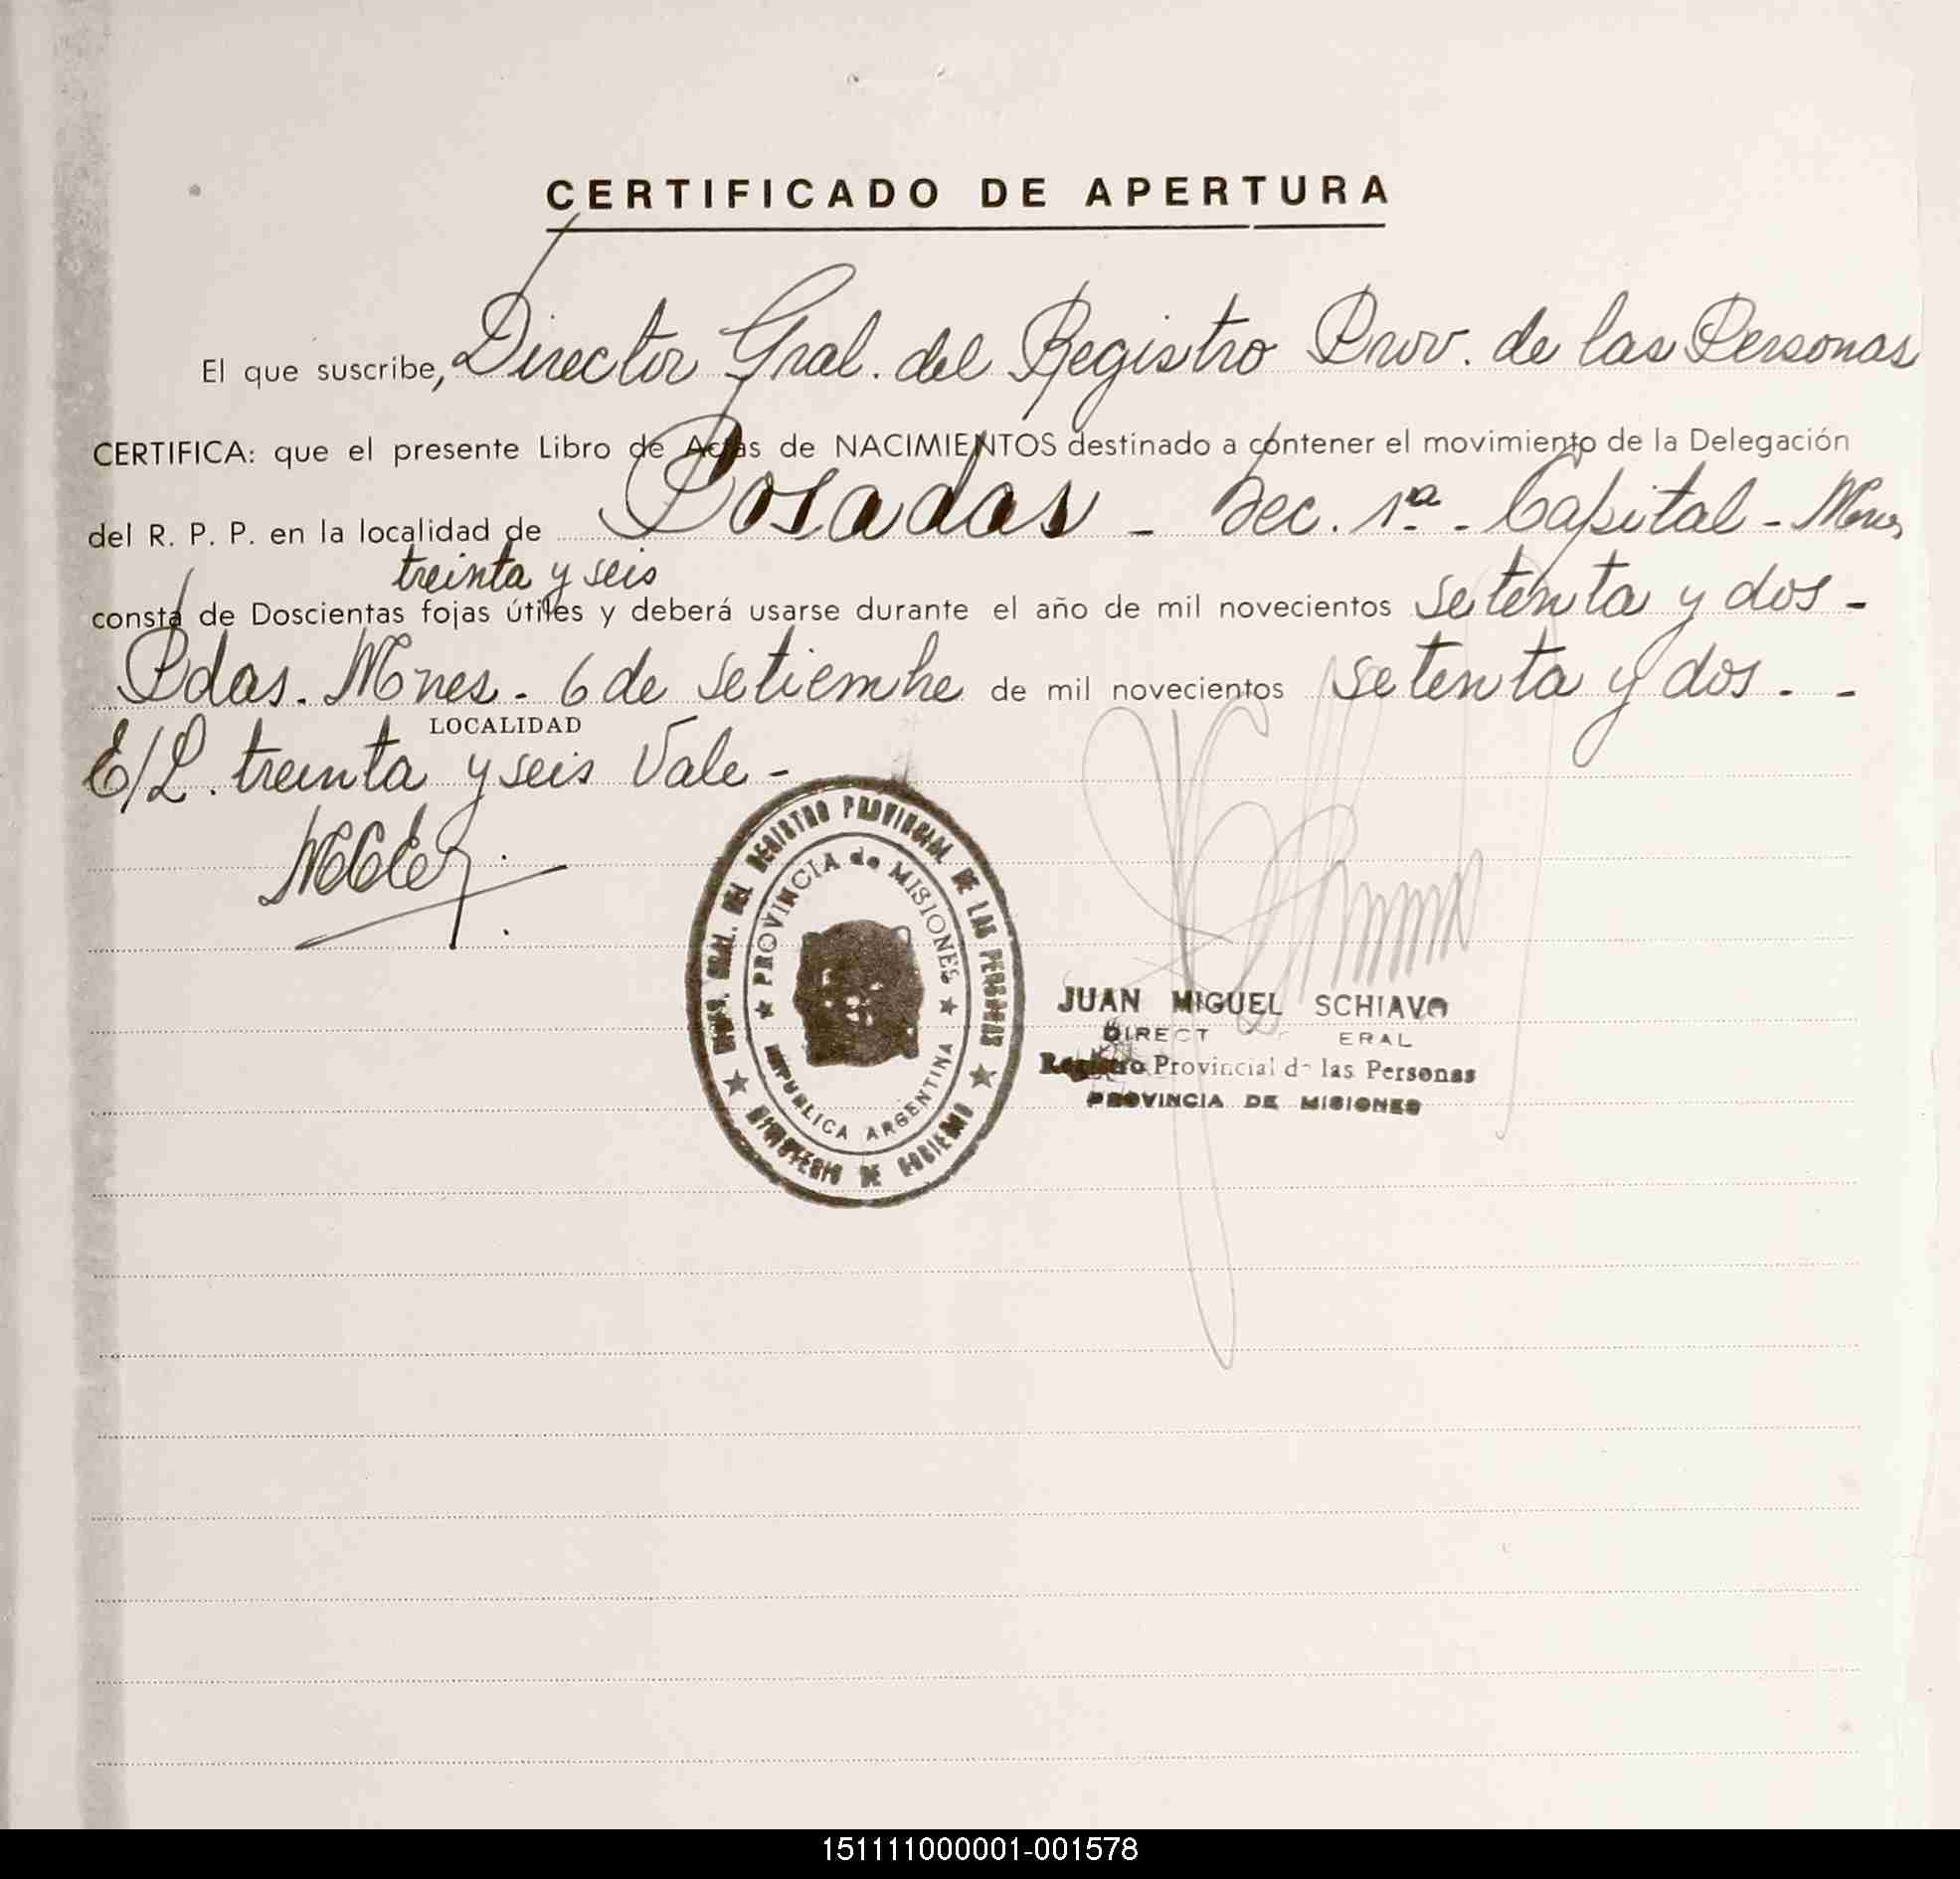 CERTIFICADO DE APERTURA
El que suscribe, Director Gral. del Registro Prov. de las Personas
CERTIFICA: que el presente Libro de Actas de NACIMIENTOS destinado a contener el movimiento de la Delegación
del R. P. P. en la localidad de Posadas - Sec. 1ª - Capital - Mnes
treinta y seis
consta de Doscientas fojas útiles y deberá usarse durante el año de mil novecientos setenta y dos -
Pdas. Mnes. 6 de setiembre de mil novecientos setenta y dos. -
LOCALIDAD
E/L. treinta y seis Vale -
DIREC. GRAL. DEL REGISTRO PROVINCIAL DE LAS PERSONAS
★ MINISTERIO DE GOBIERNO ★
★ PROVINCIA de MISIONES ★
REPUBLICA ARGENTINA
JUAN MIGUEL SCHIAVO
DIRECT ERAL
Registro Provincial de las Personas
PROVINCIA DE MISIONES
151111000001-001578